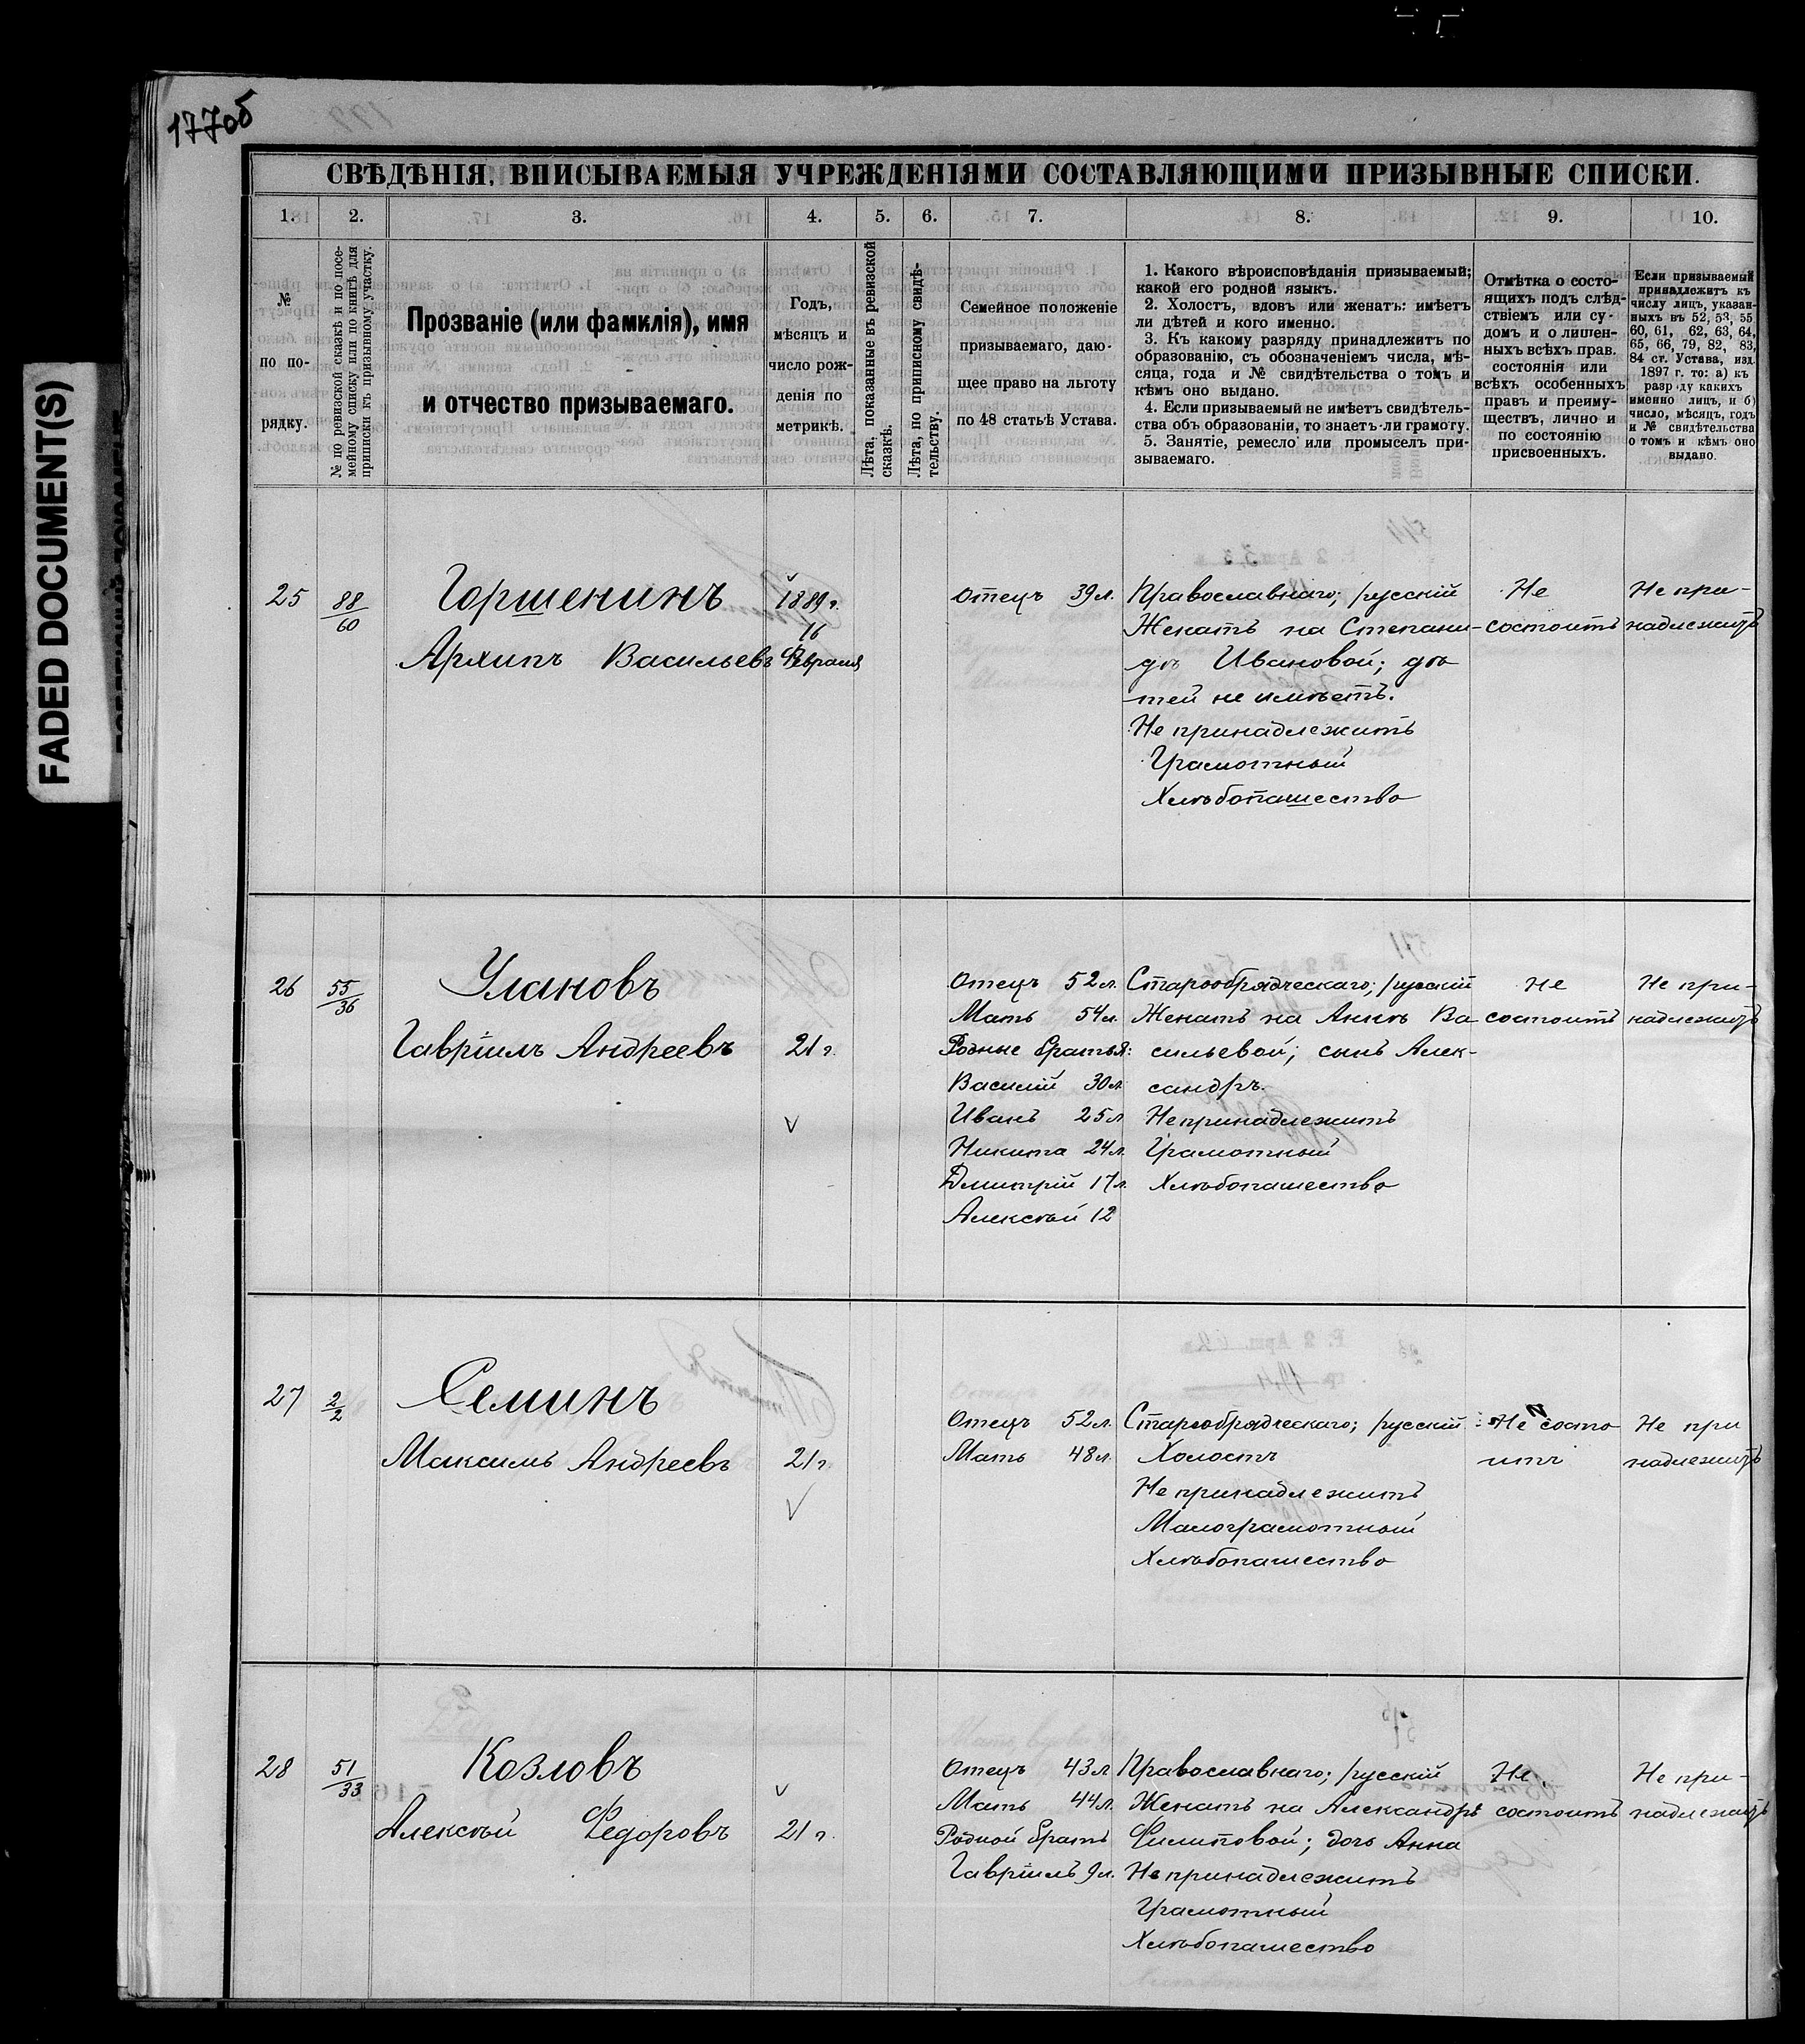 177об
FADED DOCUMENT(S)
СВѢДѢНІЯ, ВПИСЫВАЕМЫЯ УЧРЕЖДЕНІЯМИ СОСТАВЛЯЮЩИМИ ПРИЗЫВНЫЕ СПИСКИ.
1. 2. 3. 4. 5. 6. 7. 8. 9. 10.
№
по по-
рядку.
№ по ревизской сказкѣ и по посе-
мейному списку или по книгѣ для
приписки къ призывному участку.
Прозваніе (или фамилія), имя
и отчество призываемаго.
Годъ,
мѣсяцъ и
число рож-
денія по
метрикѣ.
Лѣта, показанные въ ревизской
сказкѣ.
Лѣта, по приписному свидѣ-
тельству.
Семейное положеніе
призываемаго, даю-
щее право на льготу
по 48 статьѣ Устава.
1. Какого вѣроисповѣданія призываемый;
какой его родной языкъ.
2. Холостъ, вдовъ или женатъ: имѣетъ
ли дѣтей и кого именно.
3. Къ какому разряду принадлежитъ по
образованію, съ обозначеніемъ числа, мѣ-
сяца, года и № свидѣтельства о томъ и
кѣмъ оно выдано.
4. Если призываемый не имѣетъ свидѣтель-
ства объ образованіи, то знаетъ-ли грамоту.
5. Занятіе, ремесло или промыселъ при-
зываемаго.
Отмѣтка о состо-
ящихъ подъ слѣд-
ствіемъ или су-
домъ и о лишен-
ныхъ всѣхъ прав.
состоянія или
всѣхъ особенныхъ
правъ и преиму-
ществъ, лично и
по состоянію
присвоенныхъ.
Если призываемый
принадлежитъ къ
числу лицъ, указан-
ныхъ въ 52, 53, 55
60, 61, 62, 63, 64,
65, 66, 79, 82, 83,
84 ст. Устава, изд.
1897 г. то: а) къ
разр ду какихъ
именно лицъ, и б)
число, мѣсяцъ, годъ
и № свидѣтельства
о томъ и кѣмъ оно
выдано.
25
88/60
Горшенинъ
Архипъ Васильевъ
1889 г.
16
Февраля
Отецъ 39 л.
Православнаго; русскій
Женатъ на Степани-
дѣ Ивановой; дѣ
тей не имѣетъ.
Не принадлежитъ
Грамотный
Хлѣбопашество
Не
состоитъ
Не при-
надлежитъ
26
55/36
Улановъ
Гавріилъ Андреевъ
21 г.
V
Отецъ 52 л.
Мать 54 л.
Родные братья:
Василій 30 л.
Иванъ 25 л
Никита 24 л.
Дмитрій 17 л.
Алексѣй 12
Старообрядческаго; русскій
Женатъ на Аннѣ Ва
сильевой; сынъ Алек-
сандръ.
Не принадлежитъ
Грамотный
Хлѣбопашество
Не
состоитъ
Не при-
надлежитъ
27
2/2
Семинъ
Максимъ Андреевъ
21 г.
V
Отецъ 52 л.
Мать 48 л.
Старообрядческаго; русскій
Холостъ
Не принадлежитъ
Малограмотный
Хлѣбопашество
Не состо
итъ
Не при
надлежитъ
28
51/33
Козловъ
Алексѣй Федоровъ
V
21 г.
Отецъ 43 л
Мать 44 л.
Родной братъ
Гавріилъ 9 л.
Православнаго; русскій
Женатъ на Александрѣ
Филиповой; дочь Анна
Не принадлежитъ
Грамотный
Хлѣбопашество
Не
состоитъ
Не при-
надлежитъ